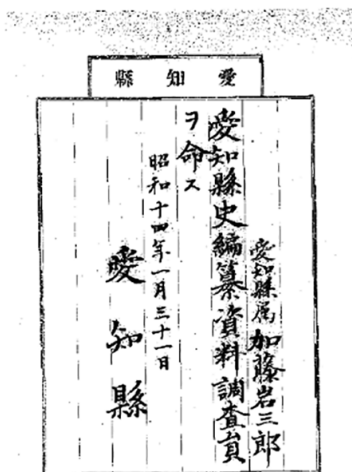 愛知縣
愛知縣属 加藤岩三郎
愛知縣史編纂資料調査員
ヲ命ス
昭和十四年一月三十一日
愛知縣